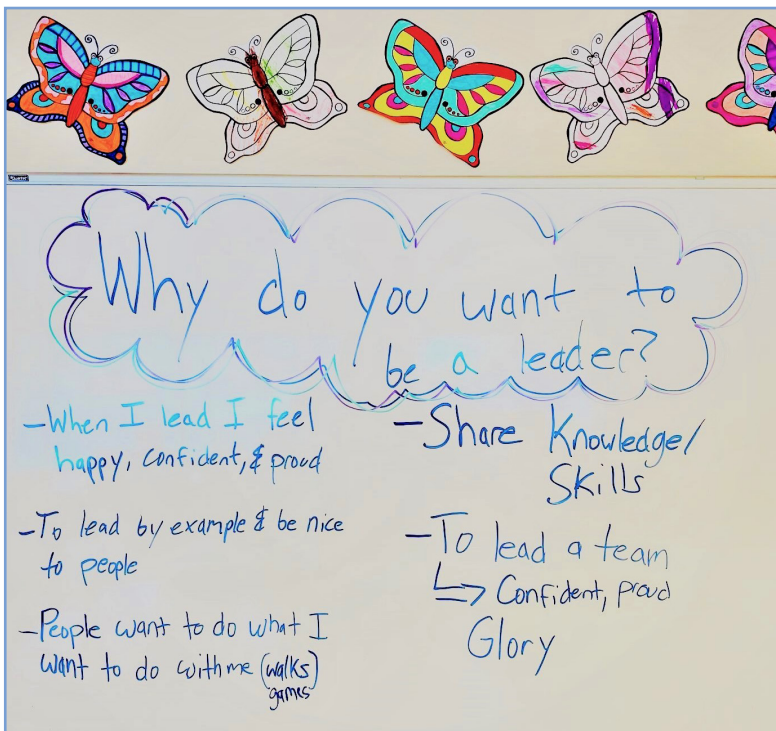 Why do you want to
be a leader?
-When I lead I feel
happy, confident, & proud
-To lead by example & be nice
to people
-People want to do what I
want to do with me (walks)
games
-Share Knowledge/
Skills
-To lead a team
↳ Confident, proud
Glory